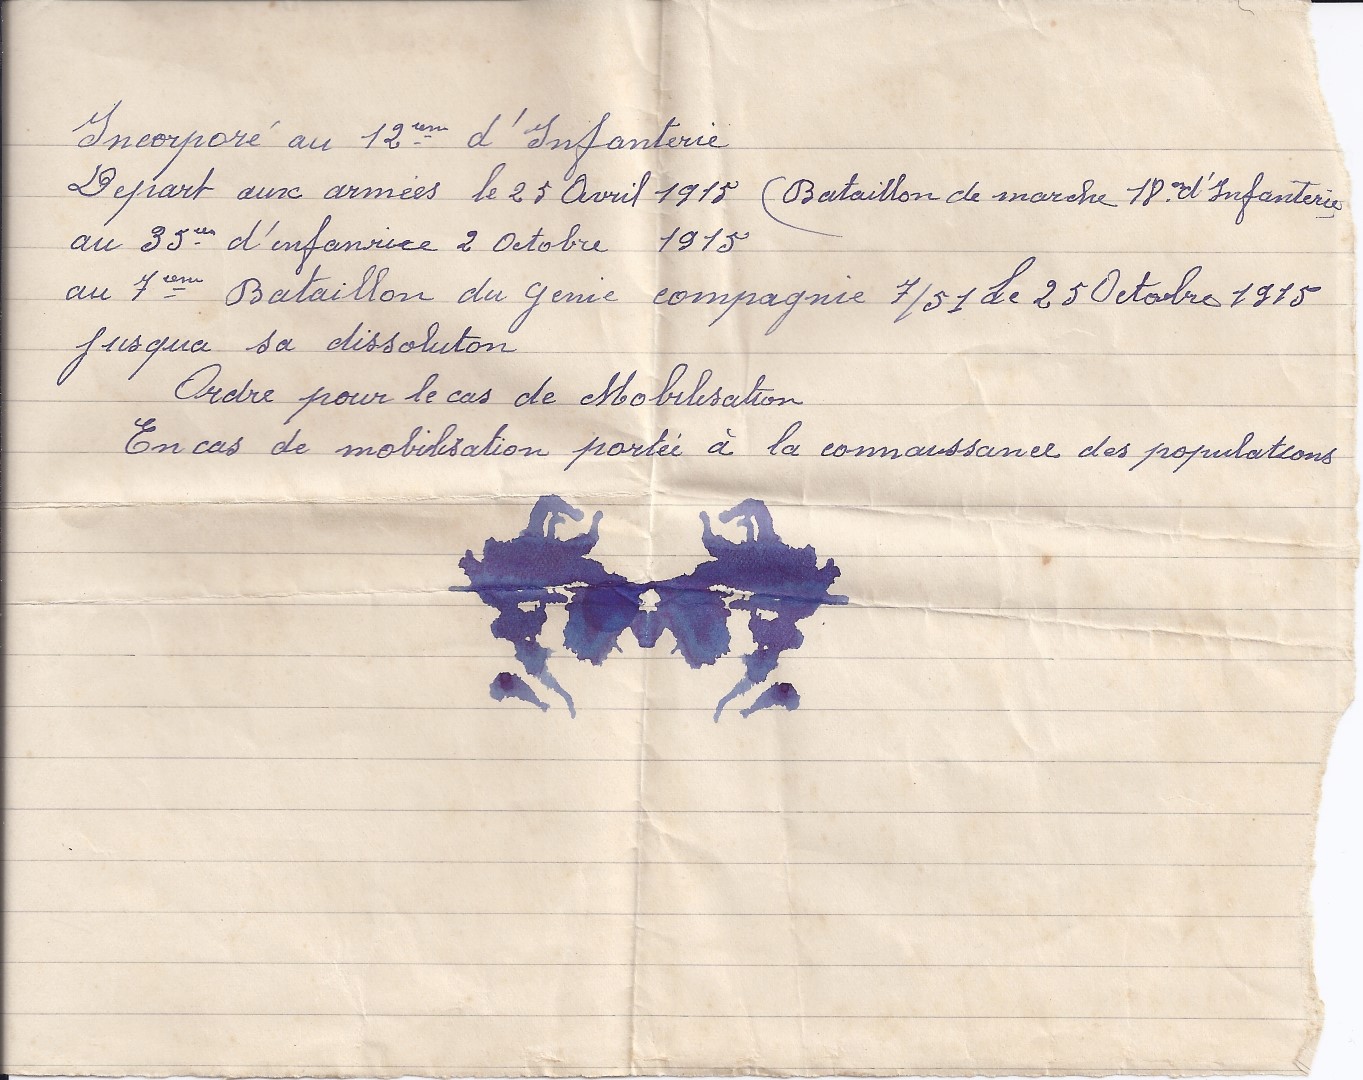 Incorporé au 12ème d'Infanterie
Départ aux armées le 25 Avril 1915 (Bataillon de marche 18e d'Infanterie
au 35ème d'infanrice 2 Octobre 1915
au 7ème Bataillon du Genie compagnie 7/51 Le 25 Octobre 1915
jusqua sa dissoluton
Ordre pour le cas de Mobilisation
En cas de mobilisation portée à la connaissance des populations